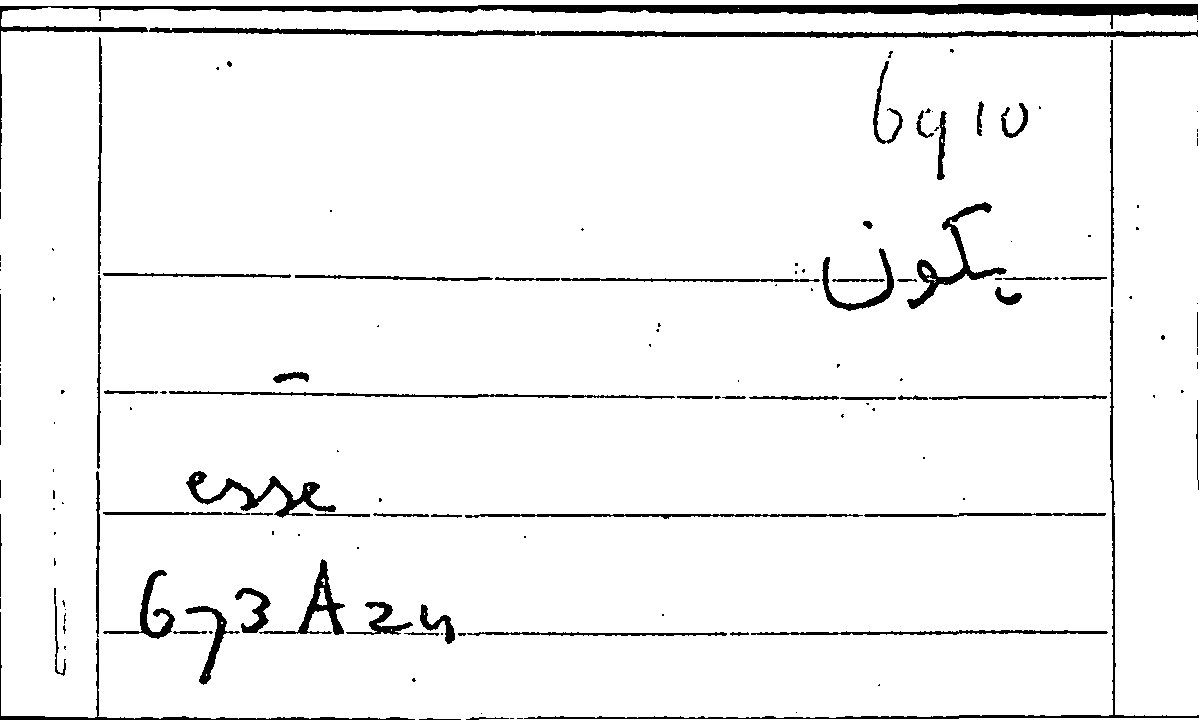 6910
يكون
–
esse
673 A 24